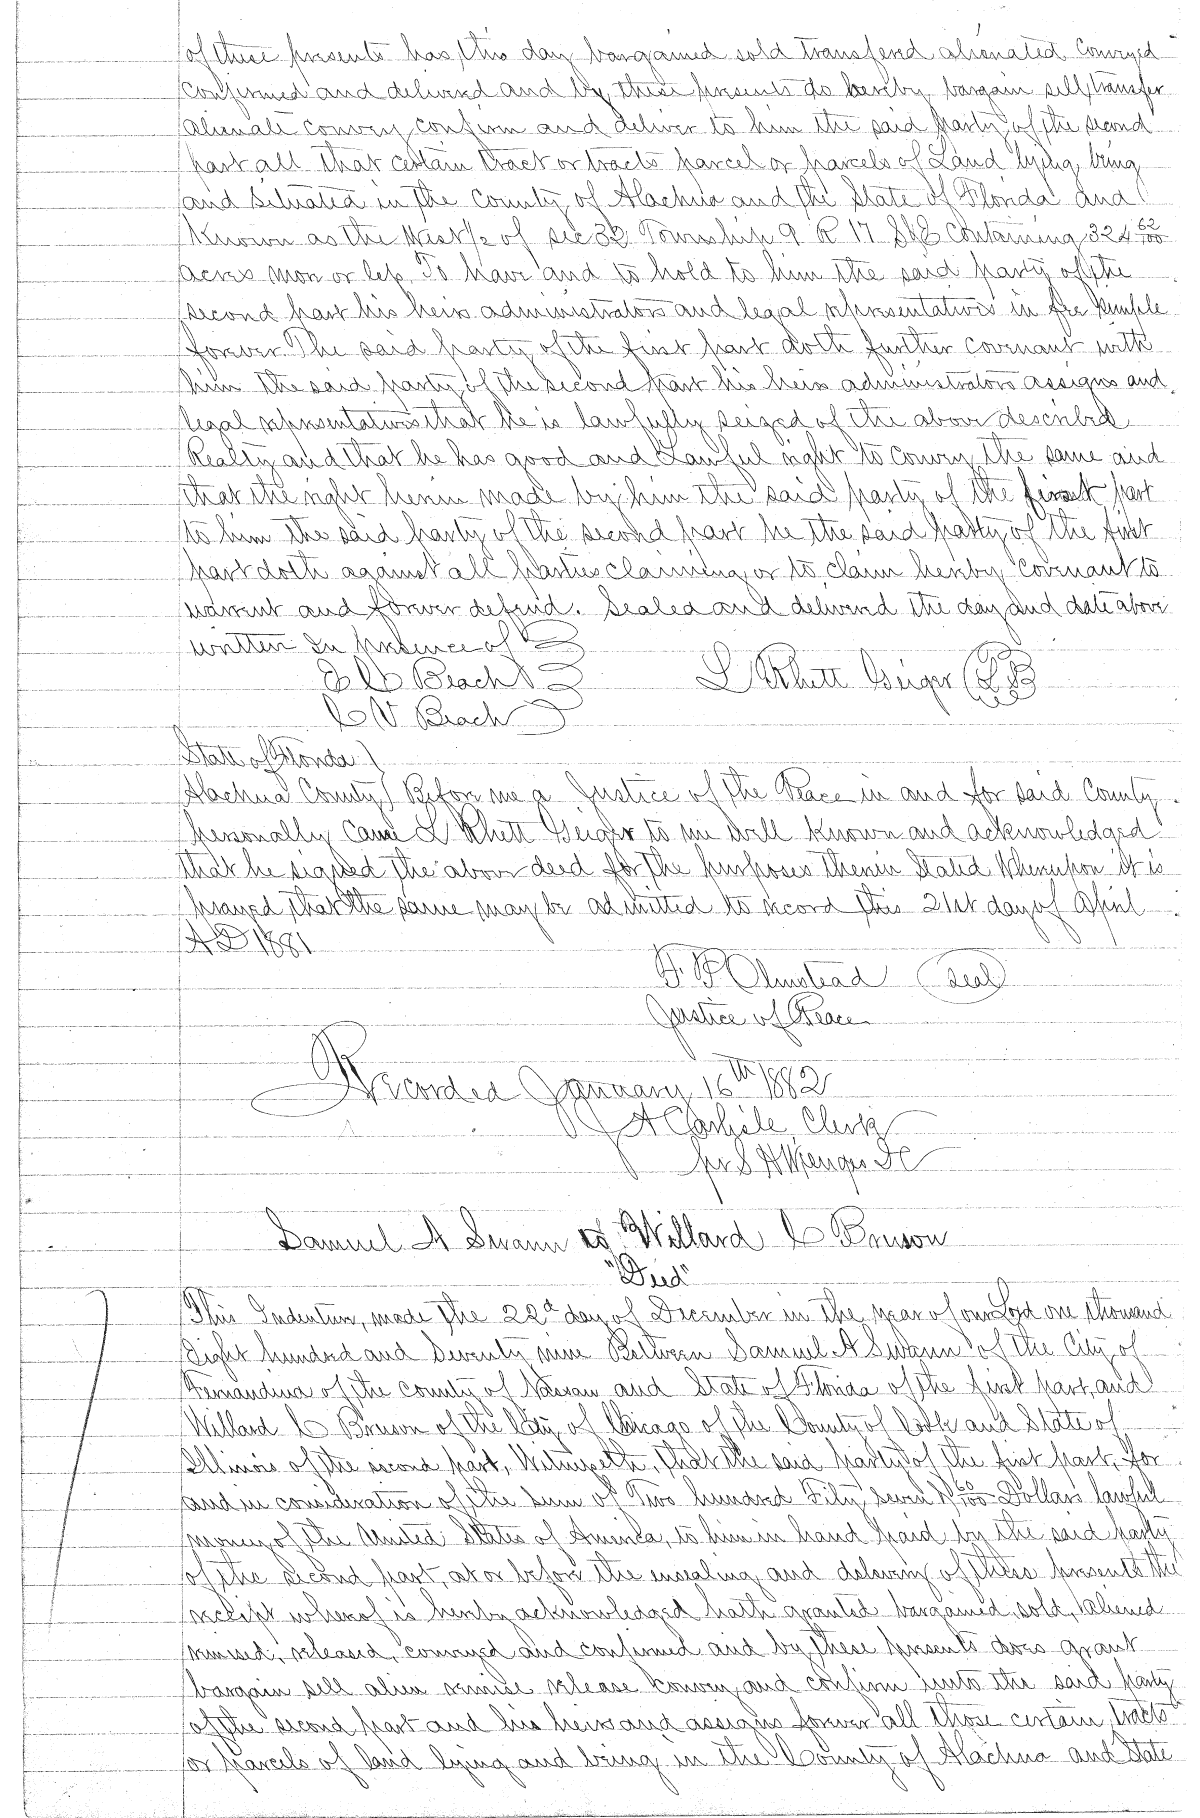 of these presents has this day bargained sold transfered alienated conveyed
confirmed and delivered and by these presents do hereby bargain sell transfer
alienate convey confirm and deliver to him the said party of the second
part all that certain tract or tracts parcel or parcels of Land lying being
and Situated in the County of Alachua and the State of Florida and
Known as the West 1/2 of sec 32 Township 9 R 17 S&E Containing 324 62/100
acres more or less To have and to hold to him the said party of the
second part his heirs administrators and legal representatives in fee simple
forever The said party of the first part doth further covenant with
him the said party of the second part his heirs administrators assigns and
legal representatives that he is lawfully seized of the above described
Realty and that he has good and Lawful right to convey the same and
that the right herein made by him the said party of the first part
to him the said party of the second part he the said party of the first
part doth against all parties claiming or to claim hereby covenant to
warrent and forever defend. Sealed and delivered the day and date above
written In presence of
Beach L Rhett Geiger
V Beach
State of Florida )
Alachua County ) Before me a Justice of the Peace in and for said County
personally came L Rhett Geiger to me well known and acknowledged
that he signed the above deed for the purposes therein Stated Whereupon it is
prayed that the same may be admitted to record this 21st day of April
AD 1881
F. P. Olmstead (seal)
Justice of Peace
Recorded January 16th 1882
J A Carlisle Clerk
pr S H Wienges DC
Samuel A Swann to Willard C Bruson
"Deed"
This Indenture, made the 22d day of December in the year of our Lord one thousand
Eight hundred and Seventy nine Between Samuel A Swann of the City of
Fernandina of the county of Nassau and State of Florida of the first part, and
Willard C Bruson of the City of Chicago of the County of Cook and State of
Illinois of the second part, Witnesseth, that the said party of the first part, for
and in consideration of the sum of Two hundred Fifty seven & 60/100 Dollars lawful
money of the United States of America, to him in hand paid by the said party
of the second part, at or before the ensealing and delivery of these presents the
receipt whereof is hereby acknowledged hath granted bargained, sold, aliened
remised, released, conveyed and confirmed and by these presents does grant
bargain sell alien remise release convey and confirm unto the said party
of the second part and his heirs and assigns forever all those certain tracts
or parcels of land lying and being in the County of Alachua and State